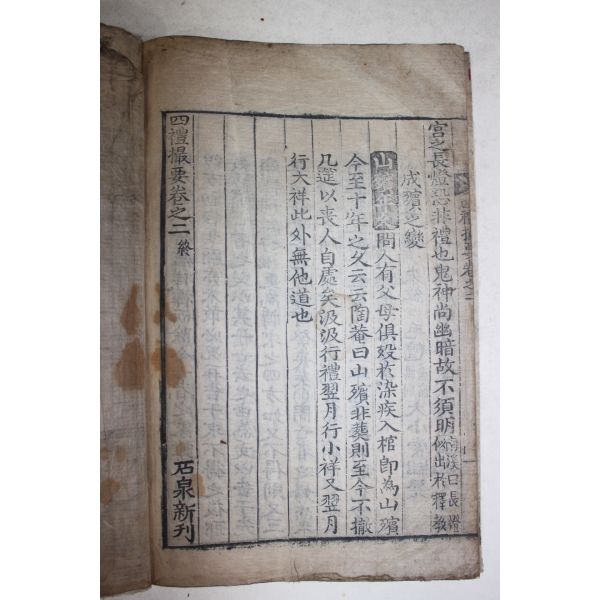 宮之長燈恐非禮也鬼神尚幽暗故不須明南溪曰長燈似出於釋敎
成殯之變
問人有父母俱歿於染疾入棺卽爲山殯
今至十年之久云云陶菴曰山殯非葬則至今不撤
几筵以喪人自處矣汲汲行禮翌月行小祥又翌月
行大祥此外無他道也
四禮撮要卷之二 終
石泉新刊